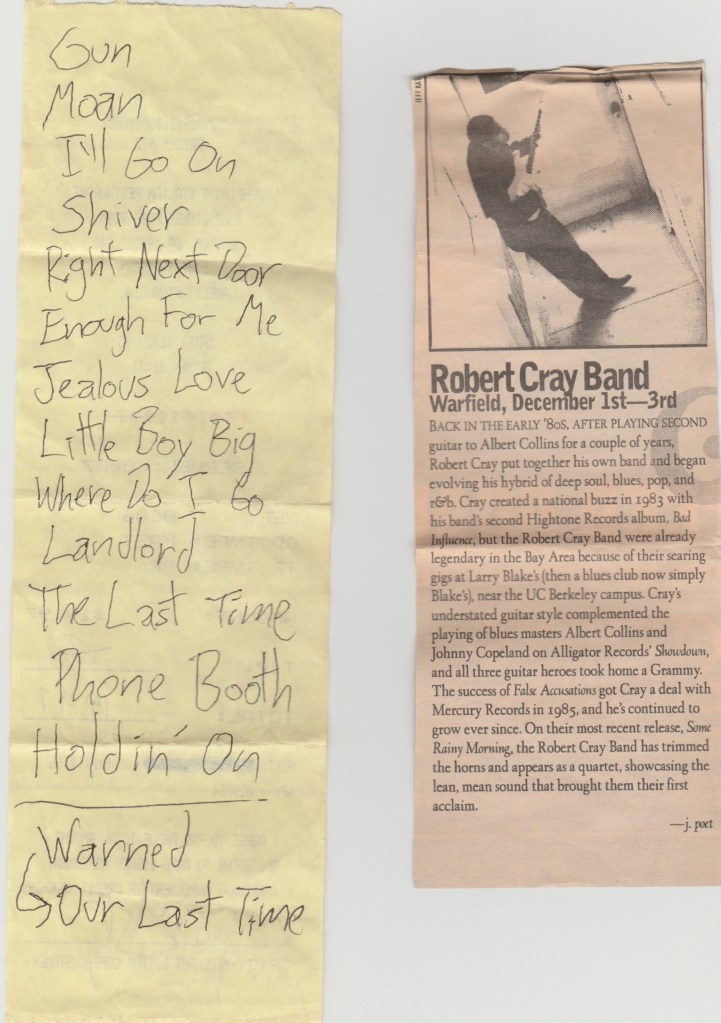 Gun
Moan
I'll Go On
Shiver
Right Next Door
Enough For Me
Jealous Love
Little Boy Big
Where Do I Go
Landlord
The Last Time
Phone Booth
Holdin' On
Warned
Our Last Time
Robert Cray Band
Warfield, December 1st—3rd
BACK IN THE EARLY '80S, AFTER PLAYING SECOND
guitar to Albert Collins for a couple of years,
Robert Cray put together his own band and began
evolving his hybrid of deep soul, blues, pop, and
r&b. Cray created a national buzz in 1983 with
his band's second Hightone Records album, Bad
Influence, but the Robert Cray Band were already
legendary in the Bay Area because of their searing
gigs at Larry Blake's (then a blues club now simply
Blake's), near the UC Berkeley campus. Cray's
understated guitar style complemented the
playing of blues masters Albert Collins and
Johnny Copeland on Alligator Records' Showdown,
and all three guitar heroes took home a Grammy.
The success of False Accusations got Cray a deal with
Mercury Records in 1985, and he's continued to
grow ever since. On their most recent release, Some
Rainy Morning, the Robert Cray Band has trimmed
the horns and appears as a quartet, showcasing the
lean, mean sound that brought them their first
acclaim.
—j. poet